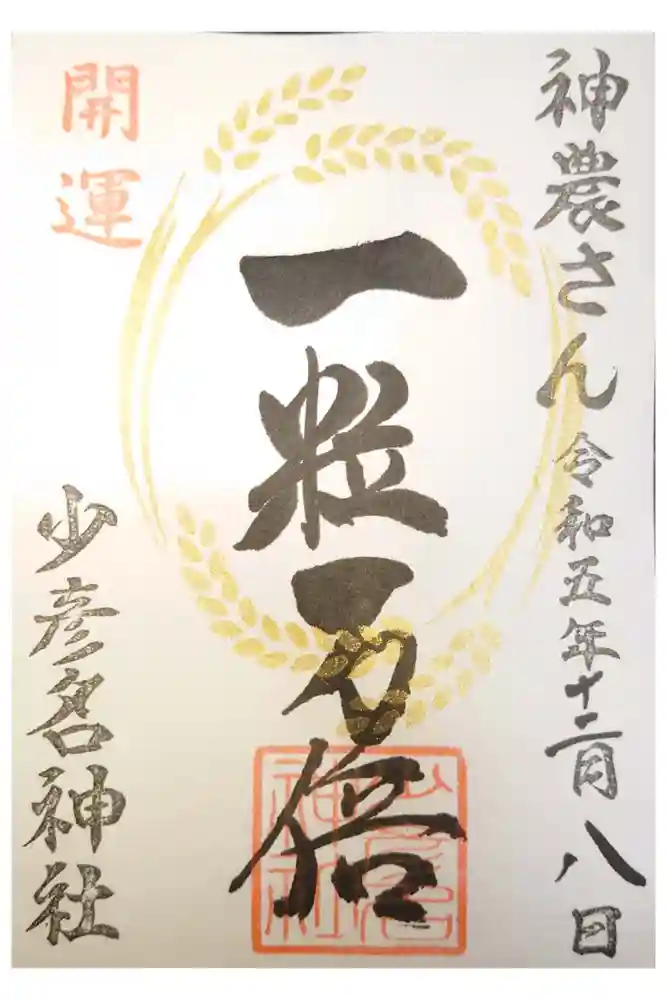 神農さん 令和五年十二月 八日
一粒万倍
開運
少彦名神社
少彦名神社